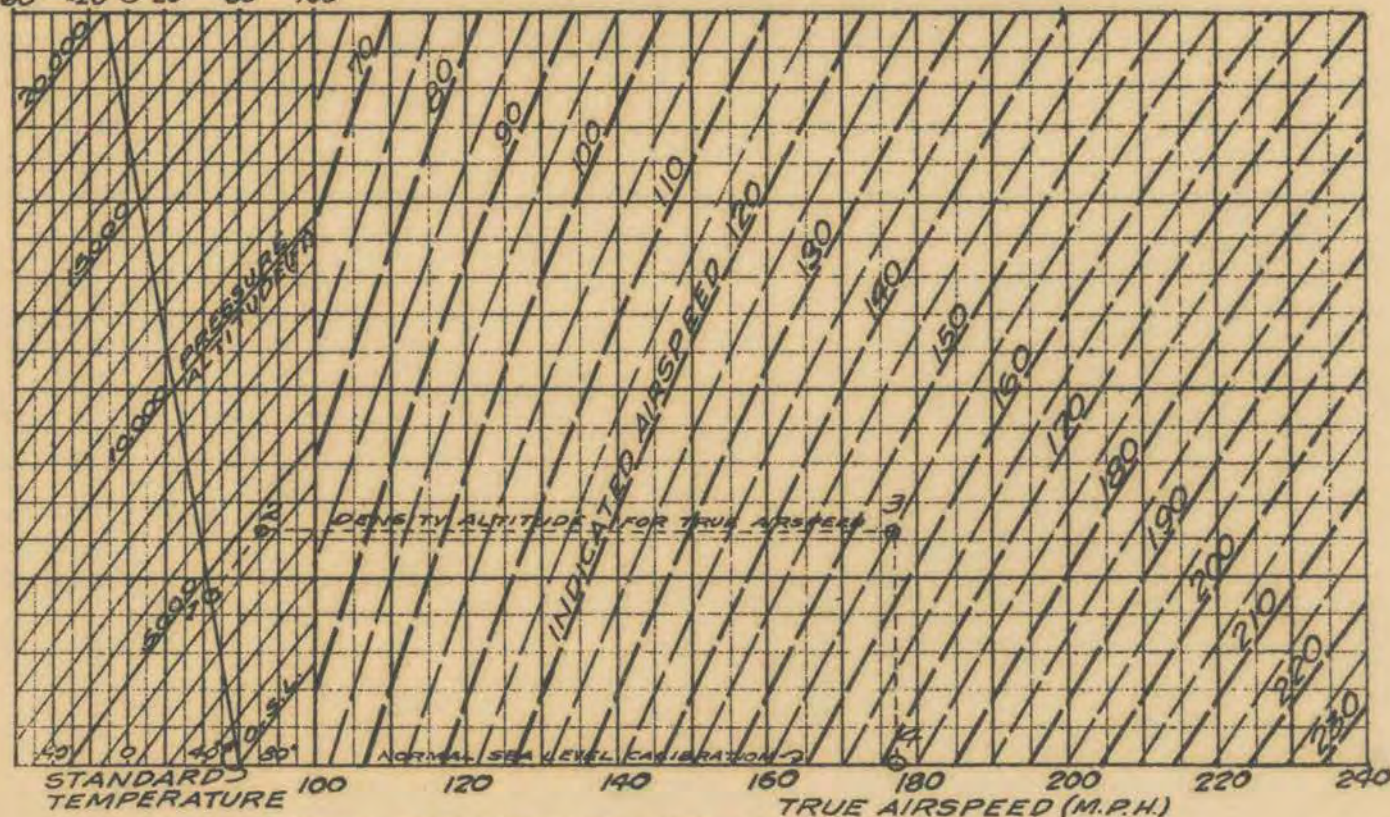 20,000
15,000
PRESSURE
ALTITUDE (FT)
10,000
5,000
0-S.L.
70
80
90
100
110
120
130
140
150
160
170
180
190
200
210
220
230
INDICATED AIRSPEED
2
DENSITY ALTITUDE FOR TRUE AIRSPEED
3
4
-40 0 40° 80°
NORMAL SEA LEVEL CALIBRATION
STANDARD
TEMPERATURE
100 120 140 160 180 200 220 240
TRUE AIRSPEED (M.P.H.)